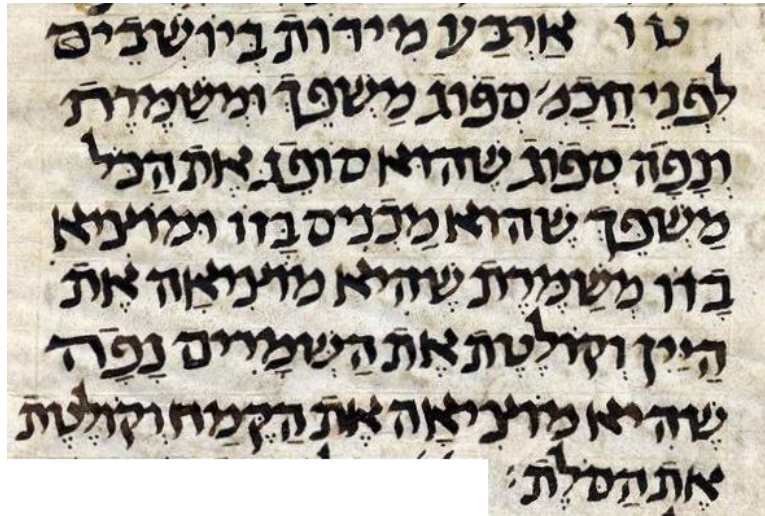 טו אַרְבַּע מִידּוֹת בַּיוֹשְׁבִים
לִפְנֵי חֲכָמ׳ סְפוֹג מַשְׁפֵּךְ וּמְשַׁמֶּרֶת
וְנָפָה סְפוֹג שֶׁהוּא סוֹפֵג אֶת הַכֹּל
מַשְׁפֵּךְ שֶׁהוּא מַכְנִיס בָּזוֹ וּמוֹצִיא
בָּזוֹ מְשַׁמֶּרֶת שֶׁהִיא מוֹצִיאָה אֶת
הַיַּיִן וְקוֹלֶטֶת אֶת הַשְּׁמָרִים נָפָה
שֶׁהִיא מוֹצִיאָה אֶת הַקֶּמַח וְקוֹלֶטֶת
אֶת הַסֹּלֶת׃